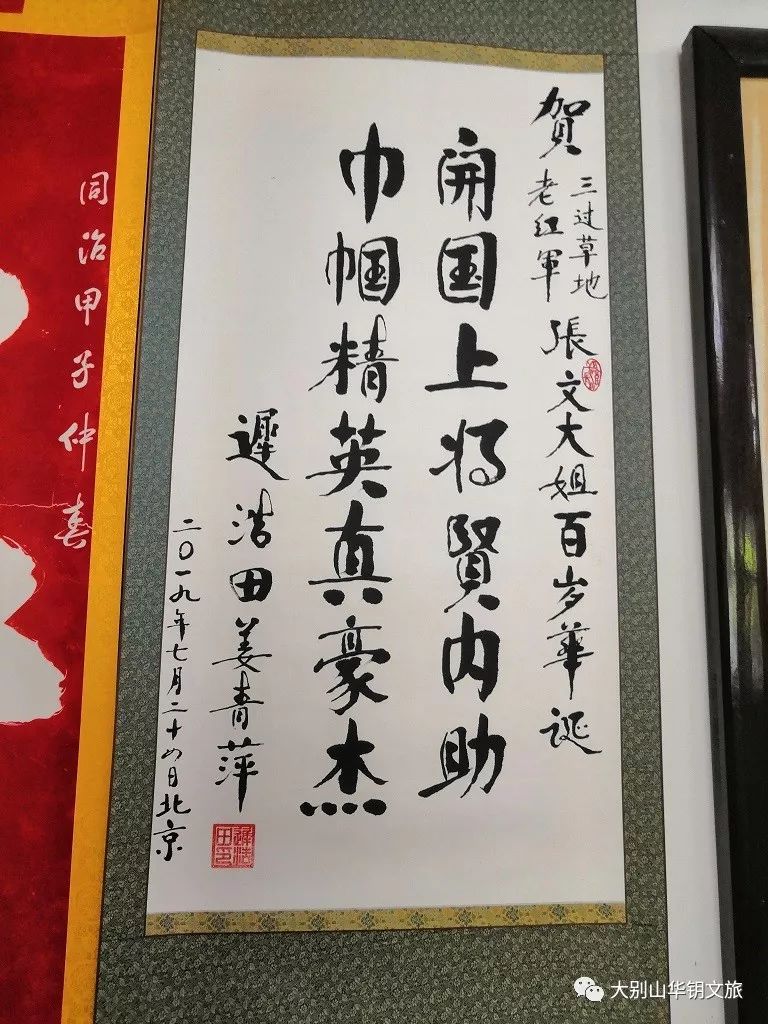 贺
三过草地
老红軍
張文大姐百岁華诞
开国上将賢内助
巾帼精英真豪杰
遲浩田姜青萍
二〇一九年七月二十四日北京
同治甲子仲春
大别山华钥文旅